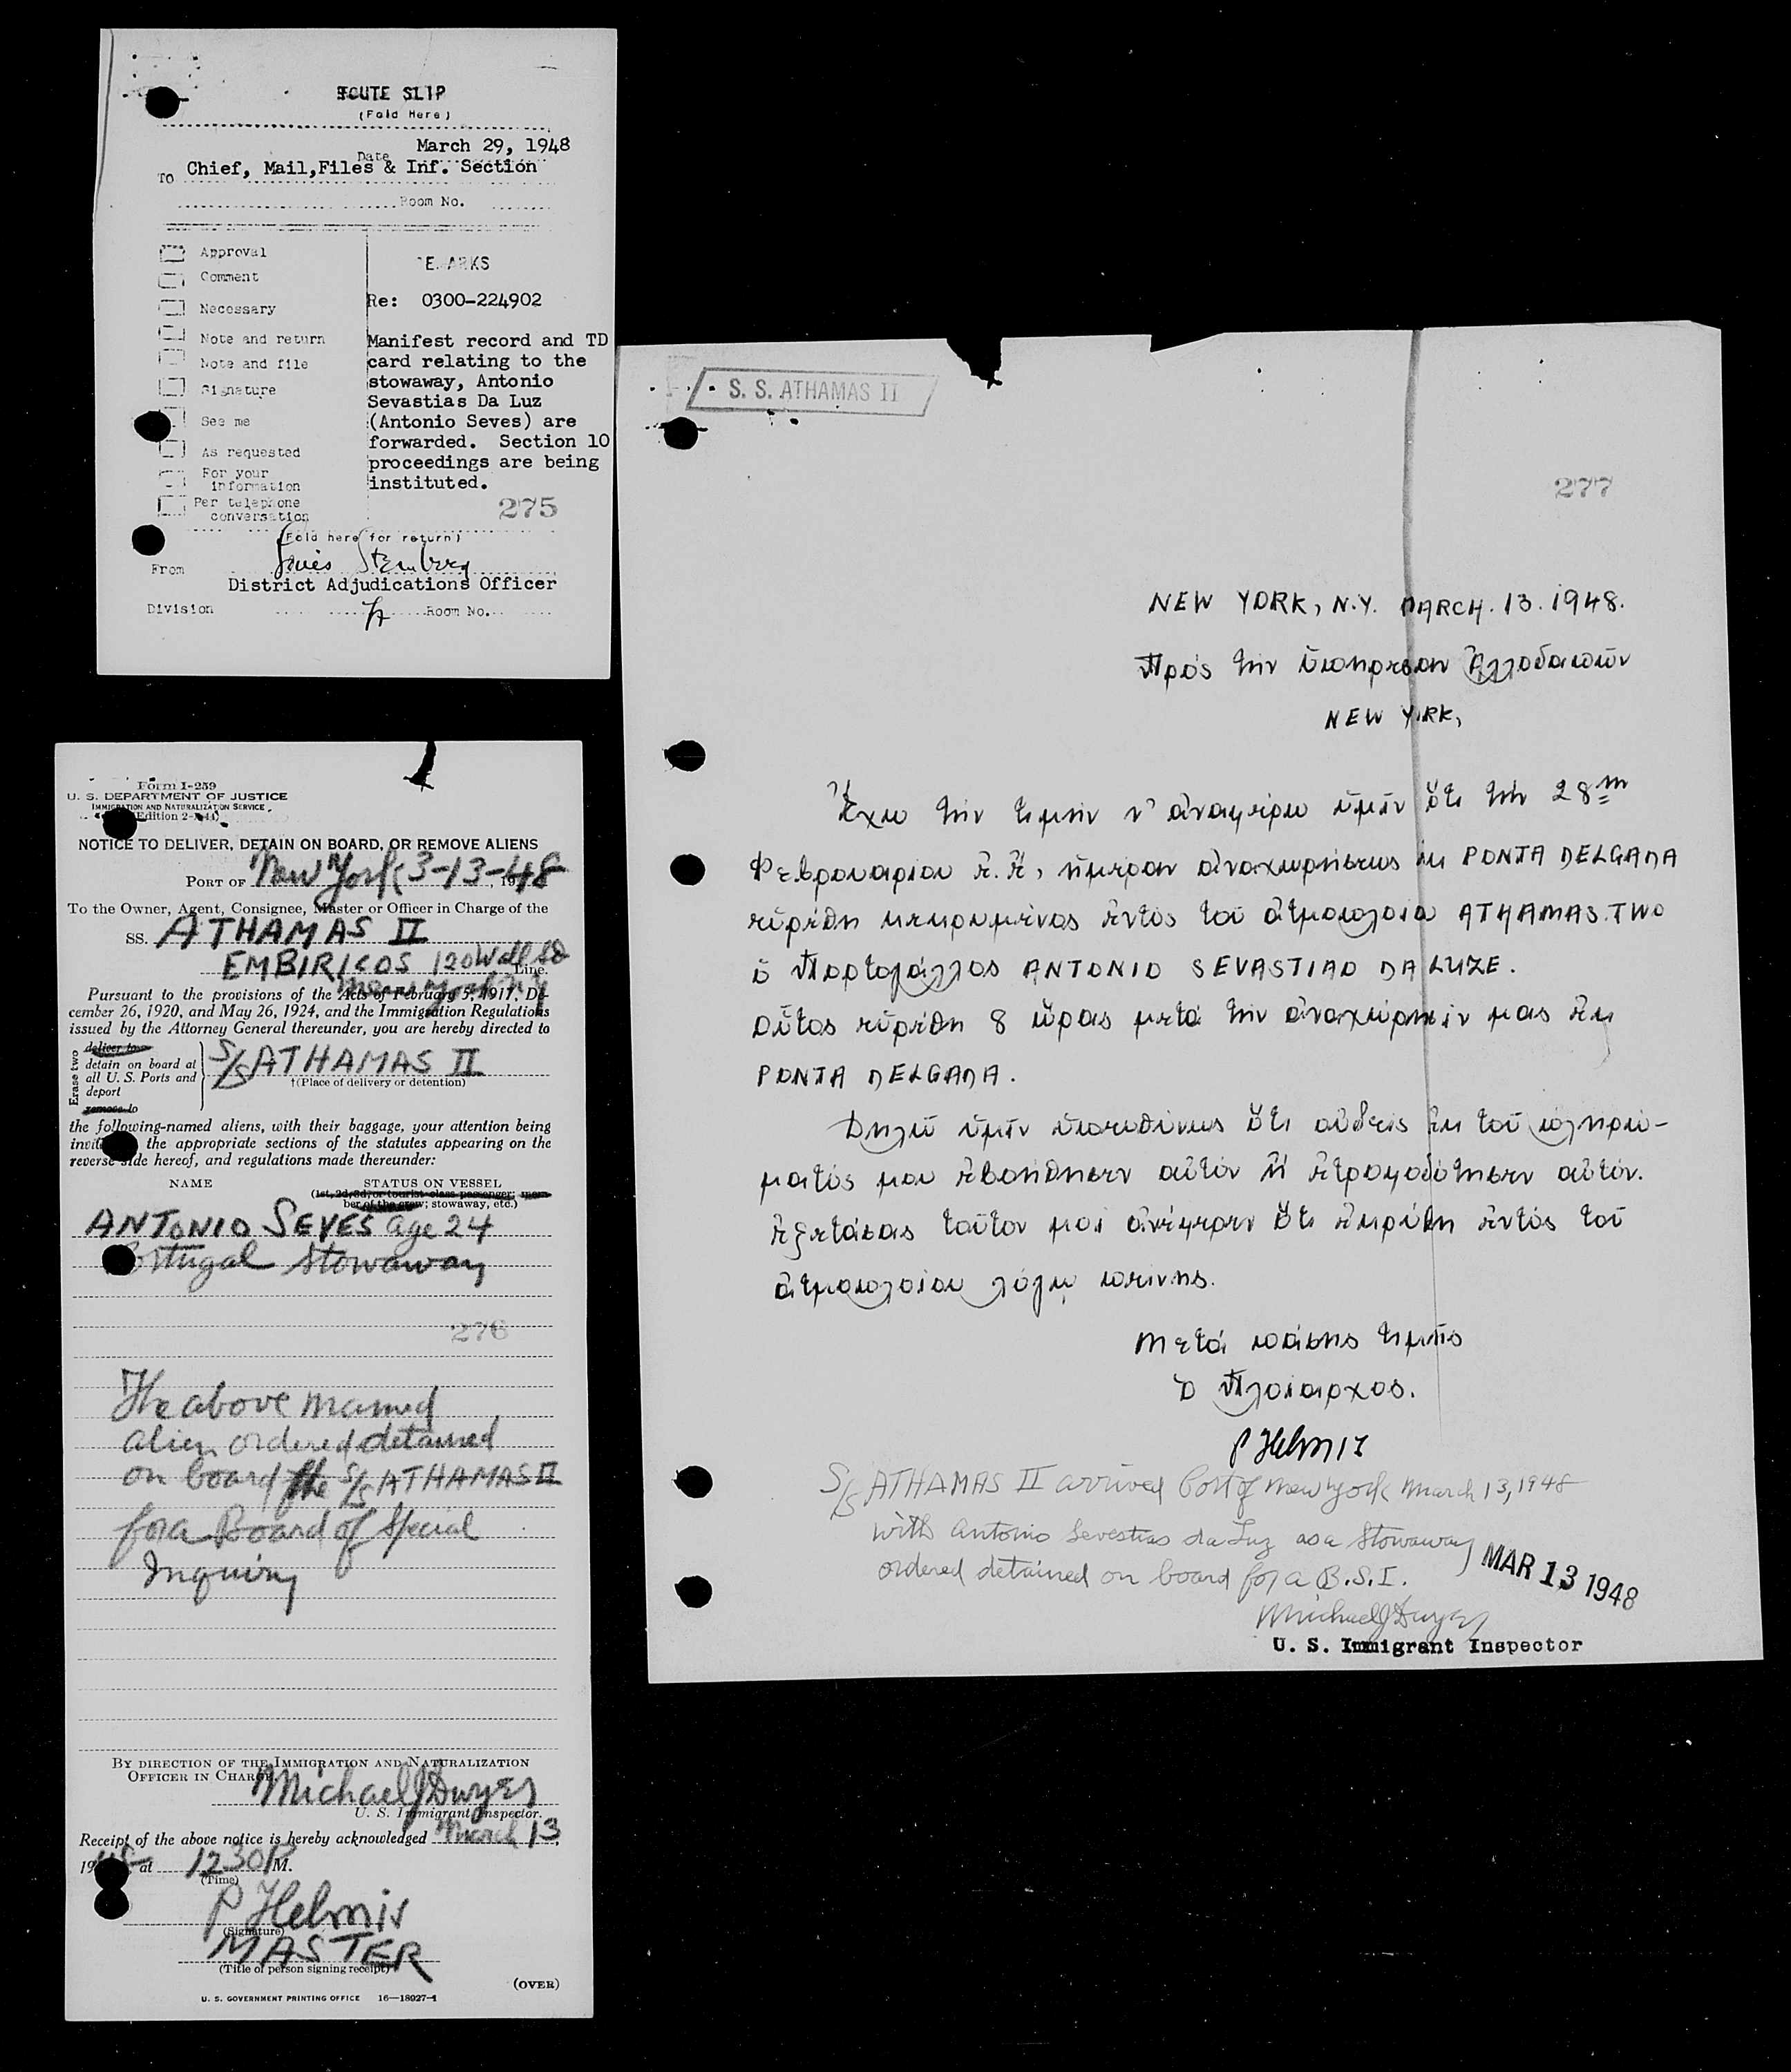 ROUTE SLIP
(Fold Here)
Date March 29, 1948
To Chief, Mail,Files & Inf. Section
Room No.
Approval
Comment
Necessary
Note and return
Note and file
Signature
See me
As requested
For your
information
Per telephone
conversation
REMARKS
Re: 0300-224902
Manifest record and TD
card relating to the
stowaway, Antonio
Sevastias Da Luz
(Antonio Seves) are
forwarded. Section 10
proceedings are being
instituted.
275
(Fold here for return)
From
District Adjudications Officer
Division Room No.
Form I-259
U. S. DEPARTMENT OF JUSTICE
IMMIGRATION AND NATURALIZATION SERVICE
NOTICE TO DELIVER, DETAIN ON BOARD, OR REMOVE ALIENS
PORT OF New York 3-13-, 1948
To the Owner, Agent, Consignee, Master or Officer in Charge of the
SS. ATHAMAS II
EMBIRICOS 120 Wall St Line
New York N.Y
Pursuant to the provisions of the Acts of February 5, 1917, De-
cember 26, 1920, and May 26, 1924, and the Immigration Regulations
issued by the Attorney General thereunder, you are hereby directed to
Erase two
deliver to
detain on board at
all U. S. Ports and
deport
remove to
S/S ATHAMAS II
†(Place of delivery or detention)
the following-named aliens, with their baggage, your attention being
invited to the appropriate sections of the statutes appearing on the
reverse side hereof, and regulations made thereunder:
NAME STATUS ON VESSEL
(1st, 2d, 3d, or tourist class passenger; mem-
ber of the crew; stowaway, etc.)
ANTONIO SEVES age 24
Portugal Stowaway
276
The above named
alien ordered detained
on board the S/S ATHAMAS II
for a Board of Special
Inquiry
BY DIRECTION OF THE IMMIGRATION AND NATURALIZATION
OFFICER IN CHARGE
Michael J Dwyer
U. S. Immigrant Inspector.
Receipt of the above notice is hereby acknowledged March 13,
1948 at 1230 P M.
(Time)
P Helmis
(Signature)
MASTER
(Title of person signing receipt)
(OVER)
U. S. GOVERNMENT PRINTING OFFICE 16—18027-1
S. S. ATHAMAS II
277
NEW YORK, N.Y. MARCH. 13. 1948.
Πρός τήν ὑπηρεσίαν Ἀλλοδαπῶν
NEW YORK,
Ἔχω τήν τιμήν ν' ἀναφέρω ὑμῖν ὅτι τήν 28ην
Φεβρουαρίου ἐ.ἔ, ἡμέραν ἀναχωρήσεως ἐκ PONTA DELGADA
εὑρέθη κεκρυμένος ἐντός τοῦ ἀτμοπλοίο ATHAMAS.TWO
ὁ Πορτογάλλος ANTONIO SEVASTIAO DA LUZE.
Οὗτος εὑρέθη 8 ὥρας μετά τήν ἀναχώρησίν μας ἐκ
PONTA DELGADA.
Δηλῶ ὑμῖν ὑπευθύνως ὅτι οὐδείς ἐκ τοῦ πληρώ-
ματός μου ἐβοήθησεν αὐτόν ἤ ἐτροφοδότησεν αὐτόν.
Ἐξετάσας τοῦτον μοί ἀνέφερεν ὅτι ἐκρύβη ἐντός τοῦ
ἀτμοπλοίου λόγῳ πείνης.
Μετά πάσης τιμῆς
Ὁ Πλοίαρχος.
P Helmis
S/S ATHAMAS II arrived Port of New York March 13, 1948
with Antonio Sevestias da Luz as a Stowaway
ordered detained on board for a B.S.I.
MAR 13 1948
Michael J Dwyer
U. S. Immigrant Inspector